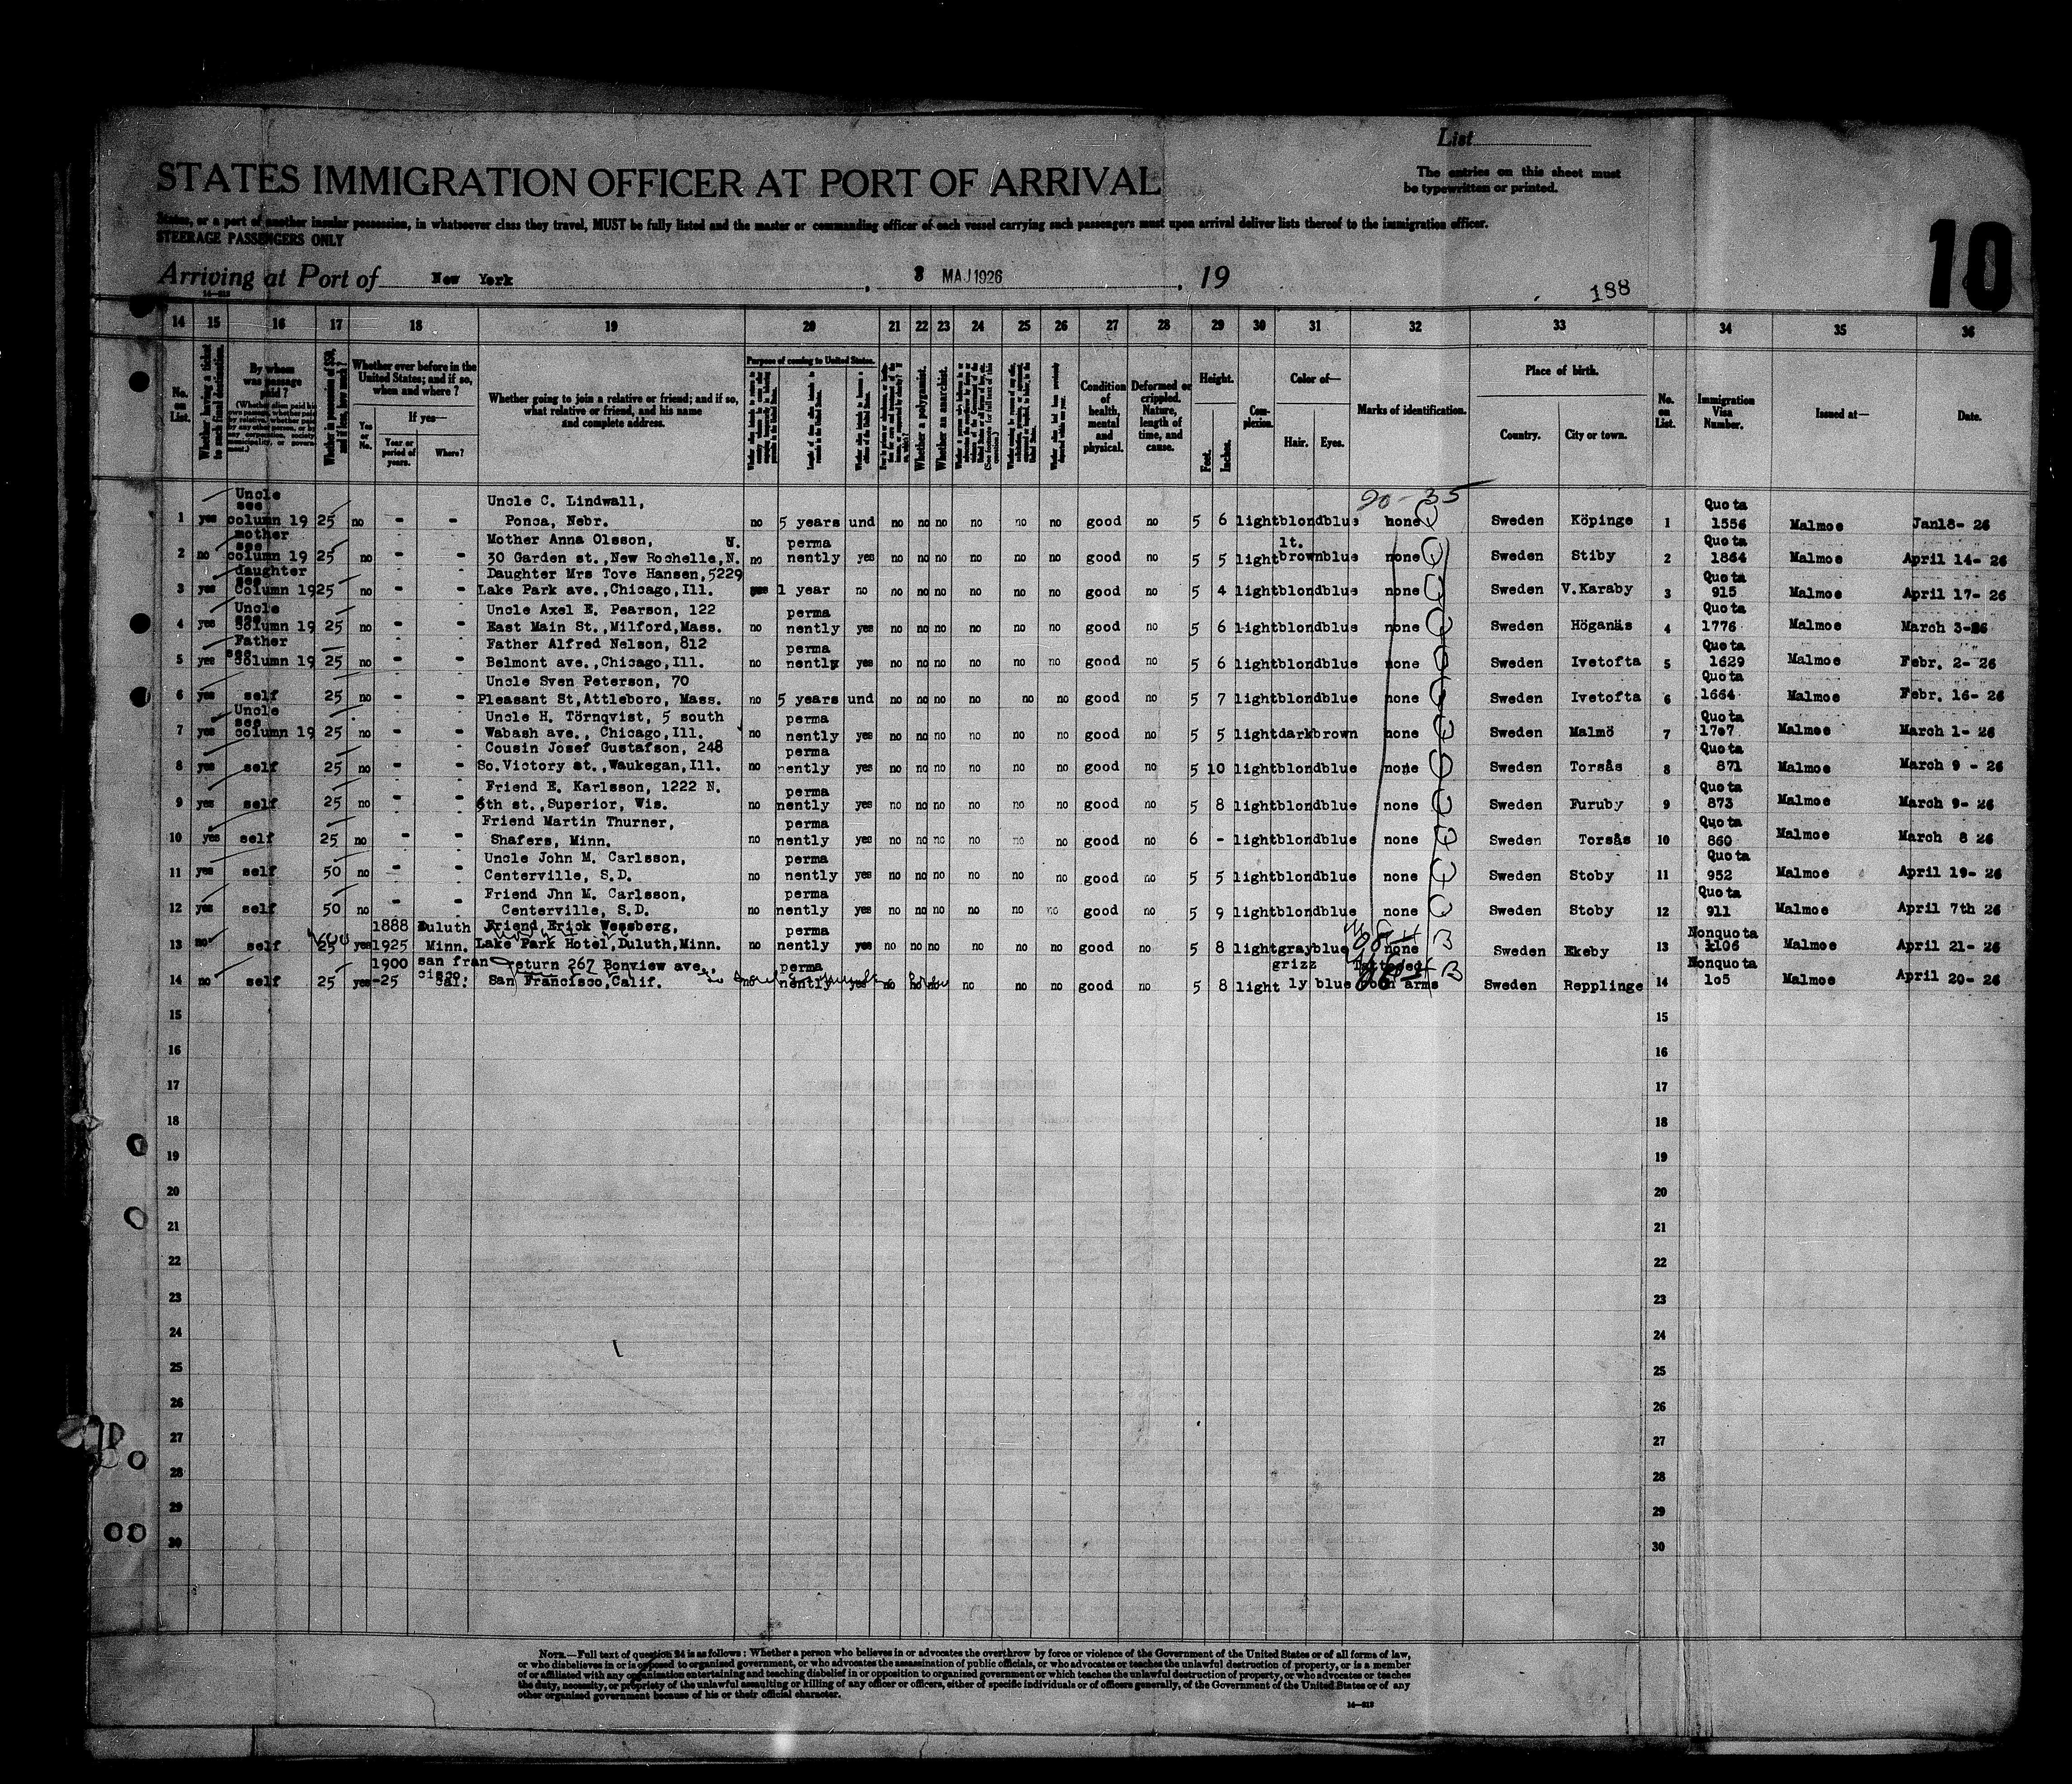 List
STATES IMMIGRATION OFFICER AT PORT OF ARRIVAL
The entries on this sheet must
be typewritten or printed.
States, or a part of another insular possession, in whatsoever class they travel, MUST be fully listed and the master or commanding officer of each vessel carrying such passengers must upon arrival deliver lists thereof to the immigration officer.
STEERAGE PASSENGERS ONLY
10
Arriving at Port of New York, 8 MAJ 1926, 19
188
14 15 16 17 18 19 20 21 22 23 24 25 26 27 28 29 30 31 32 33 34 35 36
No. on List.
Whether having a ticket to such final destination.
By whom was passage paid?
Whether in possession of $50, and if less, how much?
Whether ever before in the United States; and if so, when and where?
Yes or No.
If yes—
Year or period of years.
Where?
Whether going to join a relative or friend; and if so, what relative or friend, and his name and complete address.
Purpose of coming to United States.
Whether a polygamist.
Whether an anarchist.
Condition of health, mental and physical.
Deformed or crippled. Nature, length of time, and cause.
Height.
Feet.
Inches.
Complexion.
Color of—
Hair.
Eyes.
Marks of identification.
Place of birth.
Country.
City or town.
No. on List.
Immigration Visa Number.
Issued at—
Date.
90-35
Uncle see Uncle C. Lindwall, Quota
1 yes column 19 25 no - - Ponca, Nebr. no 5 years und no no no no no no good no 5 6 light blond blue none Sweden Köpinge 1 1556 Malmoe Jan18- 26
mother see Mother Anna Olsson, perma lt. Quota
2 no column 19 25 no - - 30 Garden st., New Rochelle, N. no nently yes no no no no no no good no 5 5 light brown blue none Sweden Stiby 2 1864 Malmoe April 14- 26
daughter see Daughter Mrs Tove Hansen, 5229 Quota
3 yes column 19 25 no - - Lake Park ave., Chicago, Ill. 1 year no no no no no no no good no 5 4 light blond blue none Sweden V.Karaby 3 915 Malmoe April 17- 26
Uncle see Uncle Axel E. Pearson, 122 perma Quota
4 yes column 19 25 no - - East Main St., Milford, Mass. no nently yes no no no no no no good no 5 6 light blond blue none Sweden Höganäs 4 1776 Malmoe March 3-26
Father see Father Alfred Nelson, 812 perma Quota
5 yes column 19 25 no - - Belmont ave., Chicago, Ill. no nently yes no no no no no no good no 5 6 light blond blue none Sweden Ivetofta 5 1629 Malmoe Febr. 2- 26
Uncle Sven Peterson, 70 Quota
6 yes self 25 no - - Pleasant St, Attleboro, Mass. no 5 years und no no no no no no good no 5 7 light blond blue none Sweden Ivetofta 6 1664 Malmoe Febr. 16- 26
Uncle see Uncle H. Törnqvist, 5 south perma Quota
7 yes column 19 25 no - - Wabash ave., Chicago, Ill. no nently yes no no no no no no good no 5 5 light dark brown none Sweden Malmö 7 1707 Malmoe March 1- 26
Cousin Josef Gustafson, 248 perma Quota
8 yes self 25 no - - So. Victory st., Waukegan, Ill. no nently yes no no no no no no good no 5 10 light blond blue none Sweden Torsås 8 871 Malmoe March 9 - 26
Friend E. Karlsson, 1222 N. perma Quota
9 yes self 25 no - - 6th st., Superior, Wis. no nently yes no no no no no no good no 5 8 light blond blue none Sweden Furuby 9 873 Malmoe March 9- 26
Friend Martin Thurner, perma Quota
10 yes self 25 no - - Shafers, Minn. no nently yes no no no no no no good no 6 - light blond blue none Sweden Torsås 10 860 Malmoe March 8 26
Uncle John M. Carlsson, perma Quota
11 yes self 50 no - - Centerville, S.D. no nently yes no no no no no no good no 5 5 light blond blue none Sweden Stoby 11 952 Malmoe April 19- 26
Friend Jhn M. Carlsson, perma Quota
12 yes self 50 no - - Centerville, S.D. no nently yes no no no no no no good no 5 9 light blond blue none Sweden Stoby 12 911 Malmoe April 7th 26
1888 Duluth Friend Erick Wessberg, perma Nonquota
13 no self 25 yes 1925 Minn. Lake Park Hotel, Duluth, Minn. no nently yes no no no no no no good no 5 8 light gray blue none B Sweden Ekeby 13 1106 Malmoe April 21- 26
1900 san francisco return 267 Bonview ave., perma grizz Tattooed Nonquota
14 no self 25 yes -25 Cal. San Francisco, Calif. no nently yes no no no no no no good no 5 8 light ly blue both arms B Sweden Repplinge 14 105 Malmoe April 20- 26
15 15
16 16
17 17
18 18
19 19
20 20
21 21
22 22
23 23
24 24
25 25
26 26
27 27
28 28
29 29
30 30
NOTE.—Full text of question 24 is as follows: Whether a person who believes in or advocates the overthrow by force or violence of the Government of the United States or of all forms of law,
or who disbelieves in or is opposed to organized government, or who advocates the assassination of public officials, or who advocates or teaches the unlawful destruction of property, or is a member
of or affiliated with any organization entertaining and teaching disbelief in or opposition to organized government or which teaches the unlawful destruction of property, or who advocates or teaches
the duty, necessity, or propriety of the unlawful assaulting or killing of any officer or officers, either of specific individuals or of officers generally, of the Government of the United States or of any
other organized government because of his or their official character.